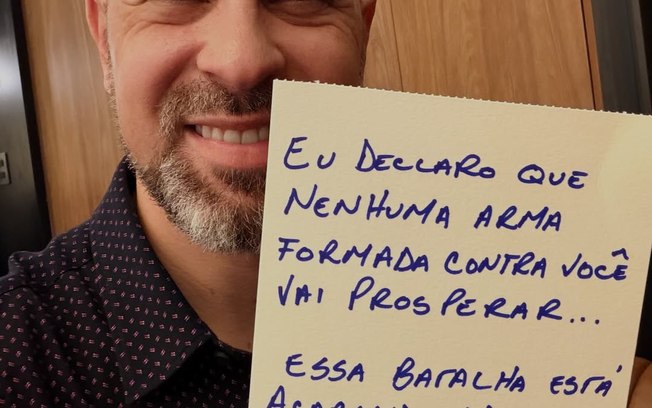 EU DECLARO QUE
NENHUMA ARMA
FORMADA CONTRA VOCÊ
VAI PROSPERAR...
ESSA BATALHA ESTÁ